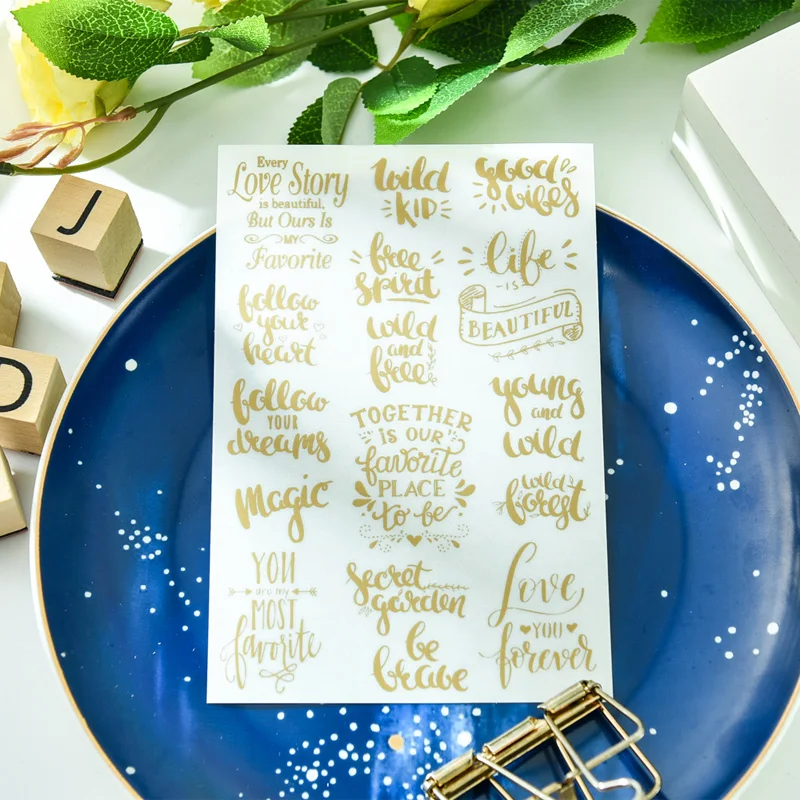 Every
Love Story
is beautiful,
But Ours Is
MY
Favorite
wild
KID
good
vibes
free
spirit
life
IS
BEAUTIFUL
follow
your
heart
wild
and
free
follow
YOUR
dreams
TOGETHER
is OUR
favorite
PLACE
to be
young
and
wild
wild
forest
magic
YOU
are my
MOST
favorite
secret
garden
be
brave
Love
YOU
forever
J
D